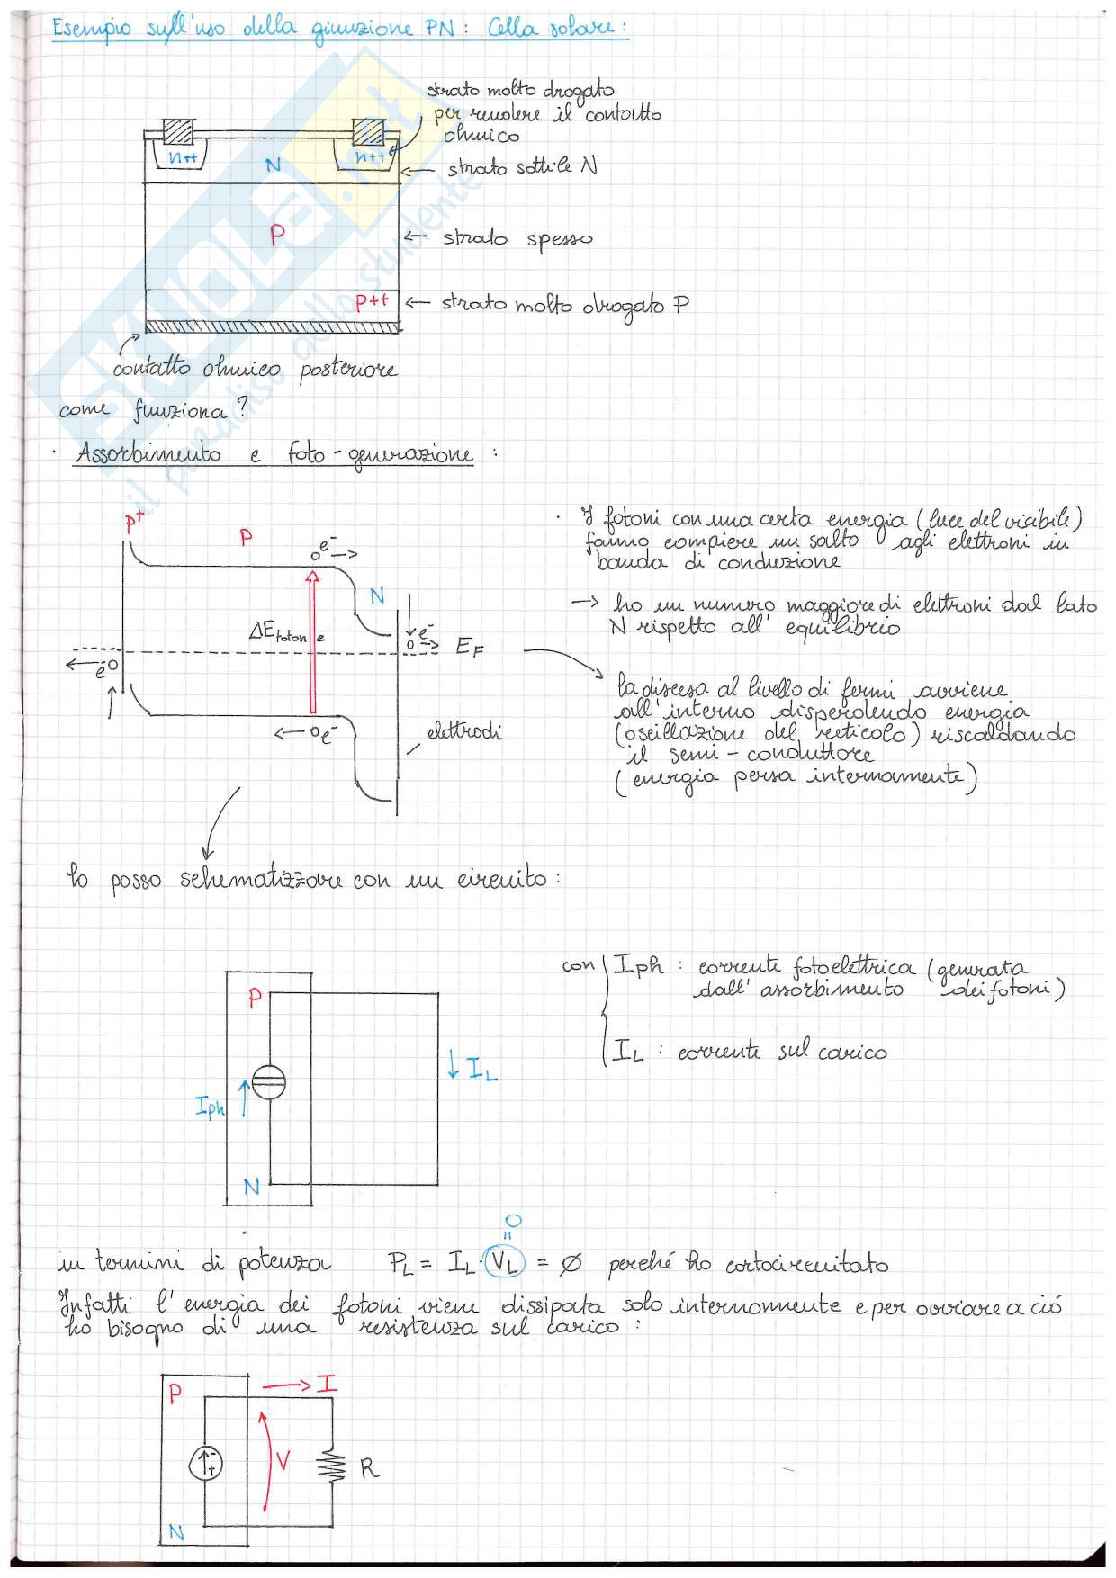 Esempio sull'uso della giunzione PN: Cella solare:
strato molto drogato
per rendere il contatto
ohmico
n++
N
n++
← strato sottile N
P
← strato spesso
P++
← strato molto drogato P
contatto ohmico posteriore
come funziona?
· Assorbimento e foto-generazione:
P+
P
e-
N
ΔEfotone
e-
EF
e-
e-
elettrodi
· I fotoni con una certa energia (luce del visibile)
fanno compiere un salto agli elettroni in
banda di conduzione
→ ho un numero maggiore di elettroni dal lato
N rispetto all'equilibrio
la discesa al livello di fermi avviene
all'interno disperdendo energia
(oscillazione del reticolo) riscaldando
il semi-conduttore
(energia persa internamente)
lo posso schematizzare con un circuito:
P
Iph
N
↓ IL
con Iph: corrente fotoelettrica (generata
dall'assorbimento dei fotoni)
IL: corrente sul carico
0
=
in termini di potenza PL = IL · VL = ∅ perché ho cortocircuitato
Infatti l'energia dei fotoni viene dissipata solo internamente e per ovviare a ciò
ho bisogno di una resistenza sul carico:
P
→ I
-
+
V
R
N
SKUOLA.net
il paradiso dello studente